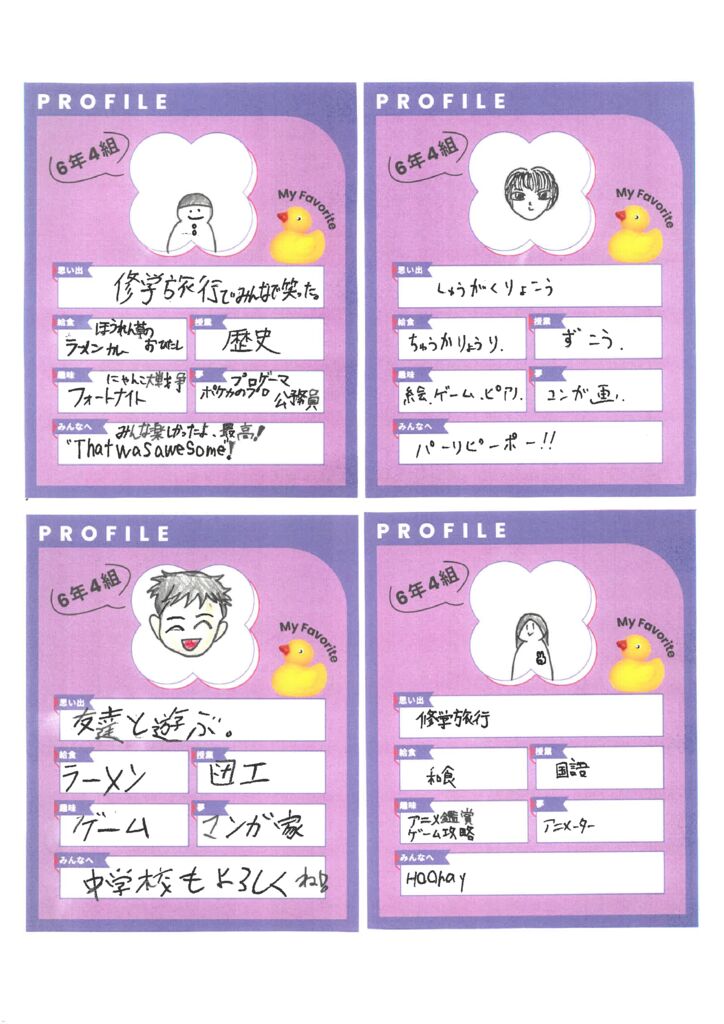 PROFILE
6年4組
My Favorite
思い出
修学旅行でみんなで笑った。
給食
ほうれん草の
おひたし
ラーメン カレー
授業
歴史
趣味
にゃんこ大戦争
フォートナイト
夢
プロゲーマ
ポケカのプロ
公務員
みんなへ
みんな楽しかったよ、最高!
"That was awesome!
PROFILE
6年4組
My Favorite
思い出
しゅうがくりょこう
給食
ちゅうかりょうり.
授業
ずこう.
趣味
絵.ゲーム.ピアノ.
夢
みんなへ
パーリピーポー!!
PROFILE
6年4組
My Favorite
思い出
友達と遊ぶ。
給食
ラーメン
授業
図工
趣味
ゲーム
夢
マンガ家
みんなへ
中学校もよろしくね!!
PROFILE
6年4組
My Favorite
思い出
修学旅行
給食
和食
授業
国語
趣味
アニメ鑑賞
ゲーム攻略
夢
アニメーター
みんなへ
Hooray